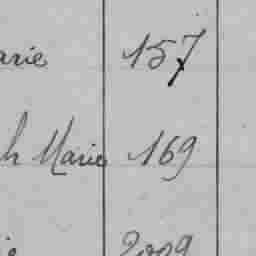 arie 157
h Marie 169
ie 2009